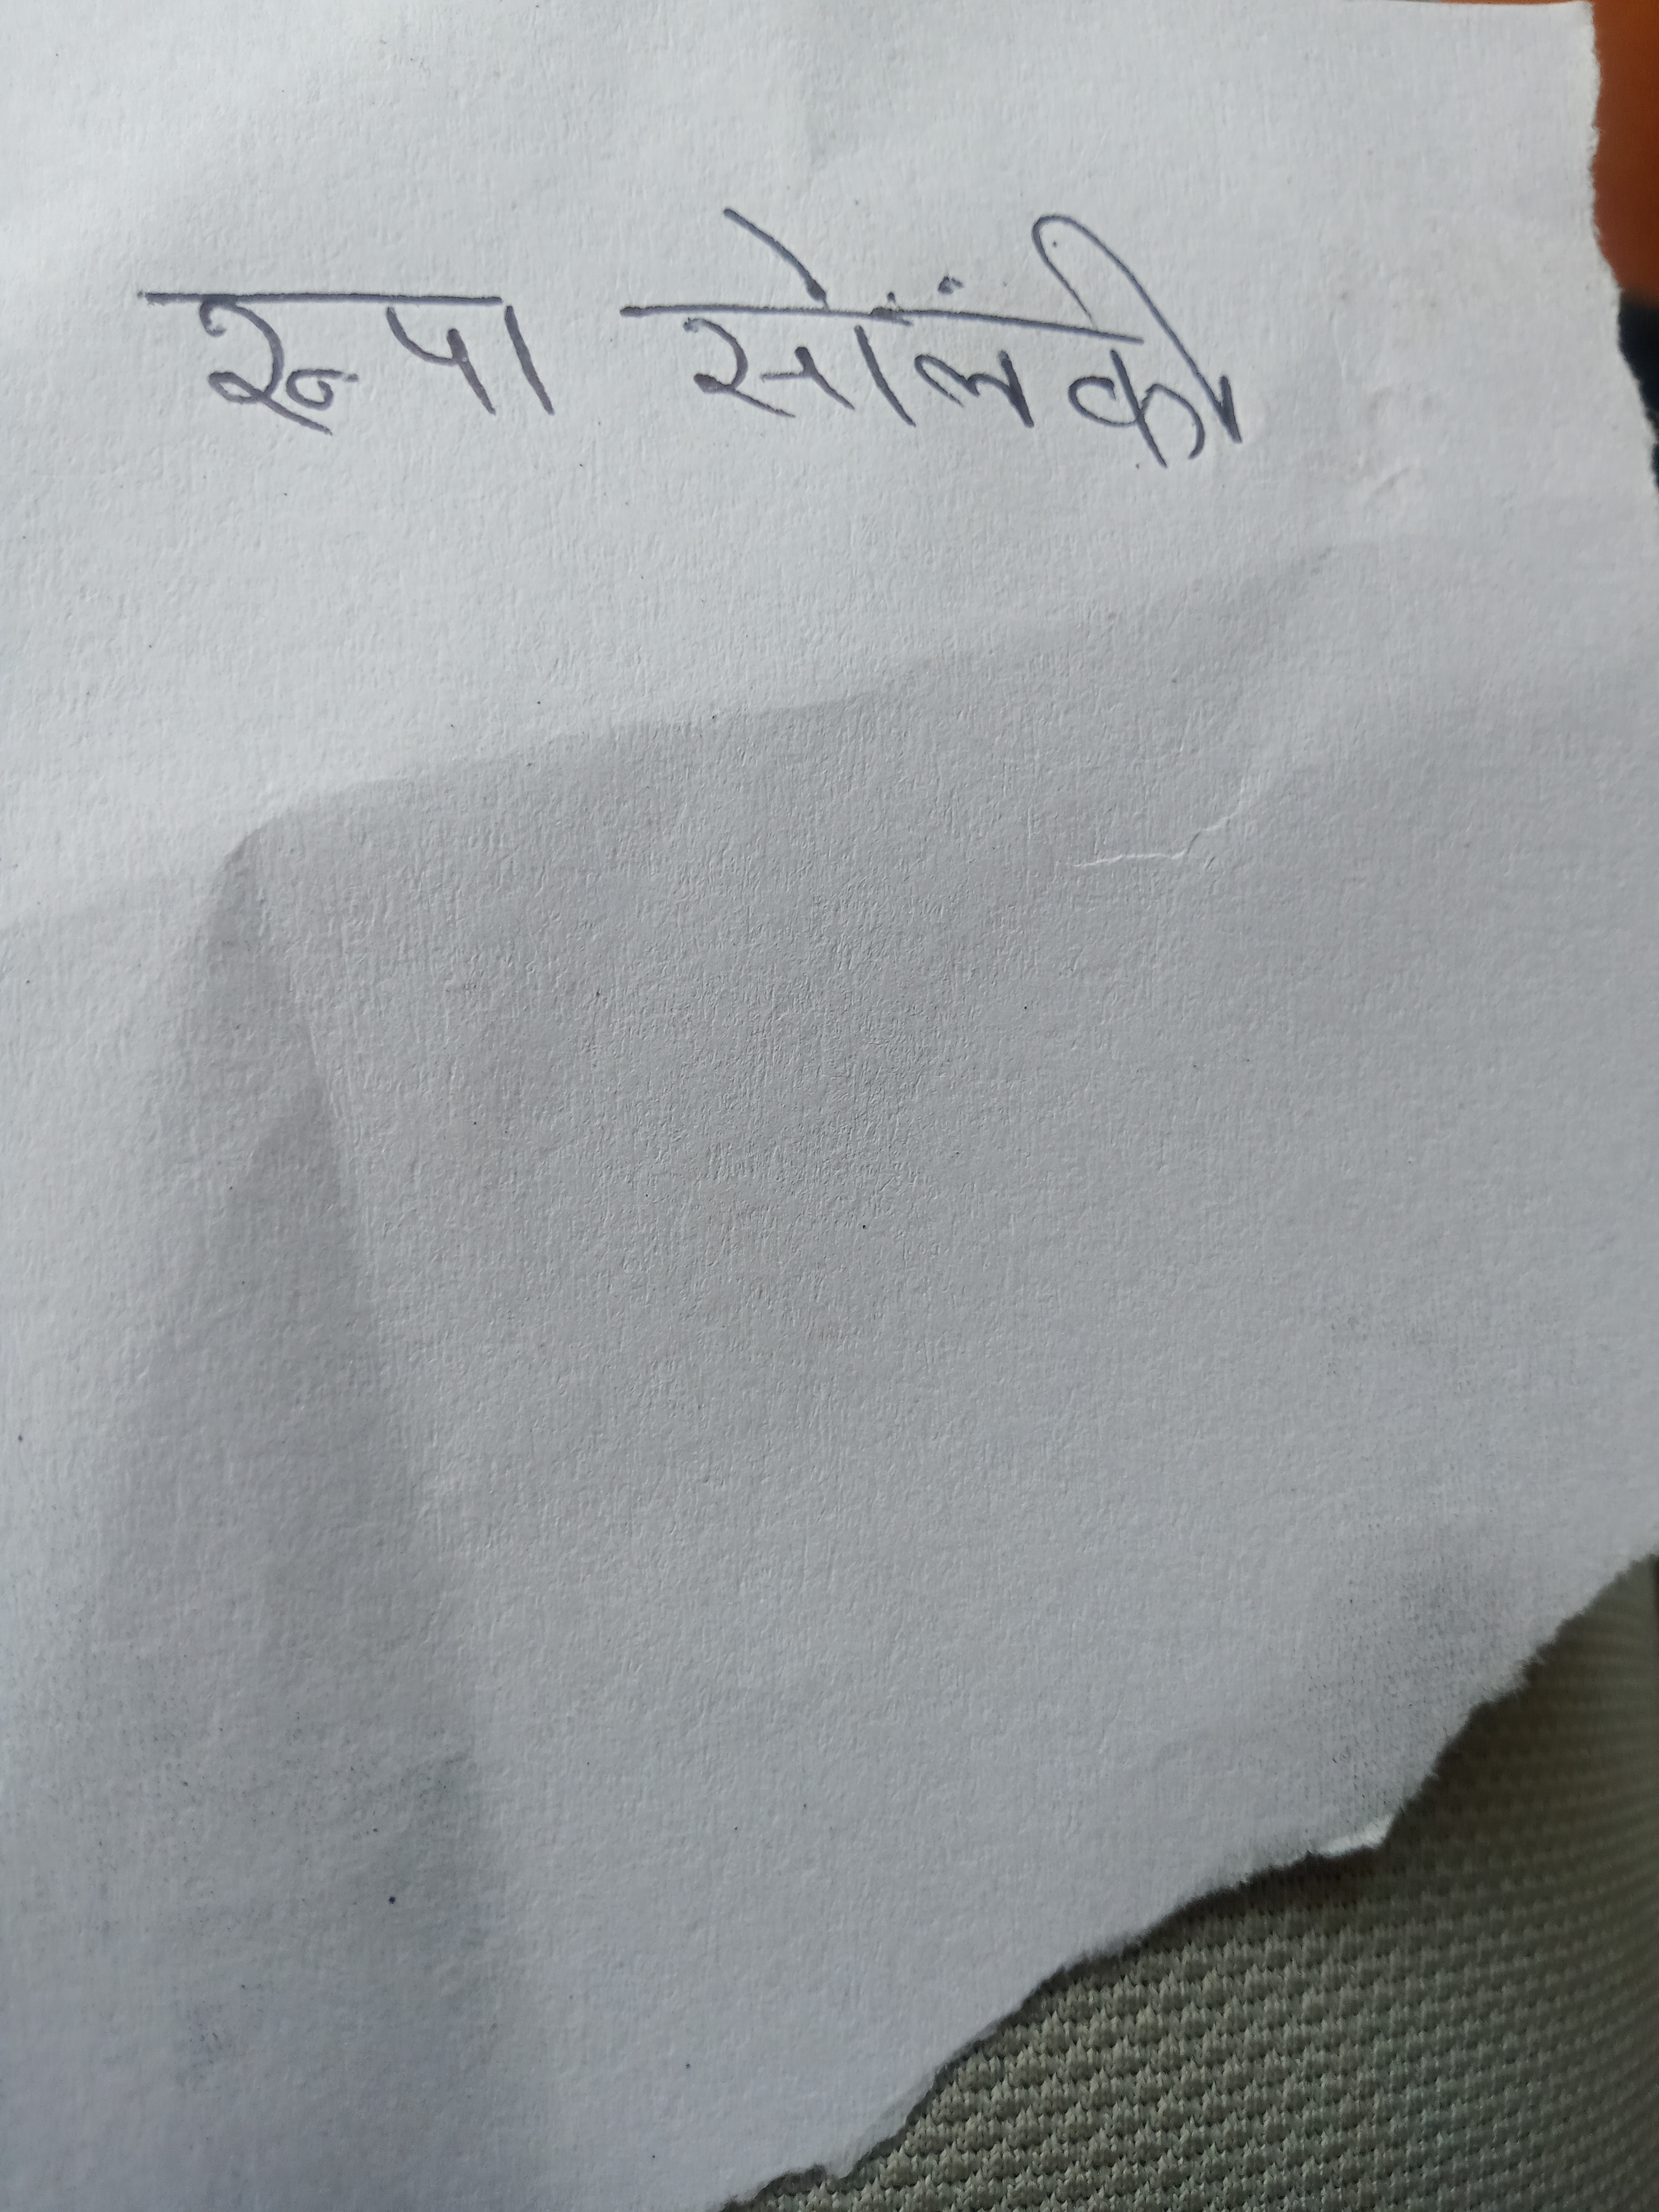 रूपा सोलंकी